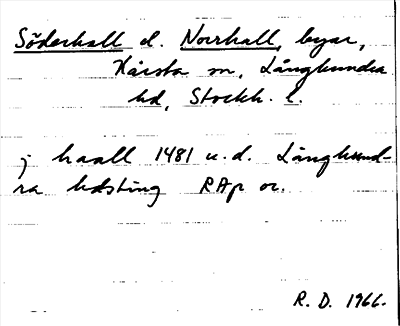 Söderhall o. Norrhall, byar,
Kårsta sn, Långhundra
hd, Stockh. l.
j haall 1481 u.d. Långhund-
ra hdsting RAp or.
R. D. 1966.